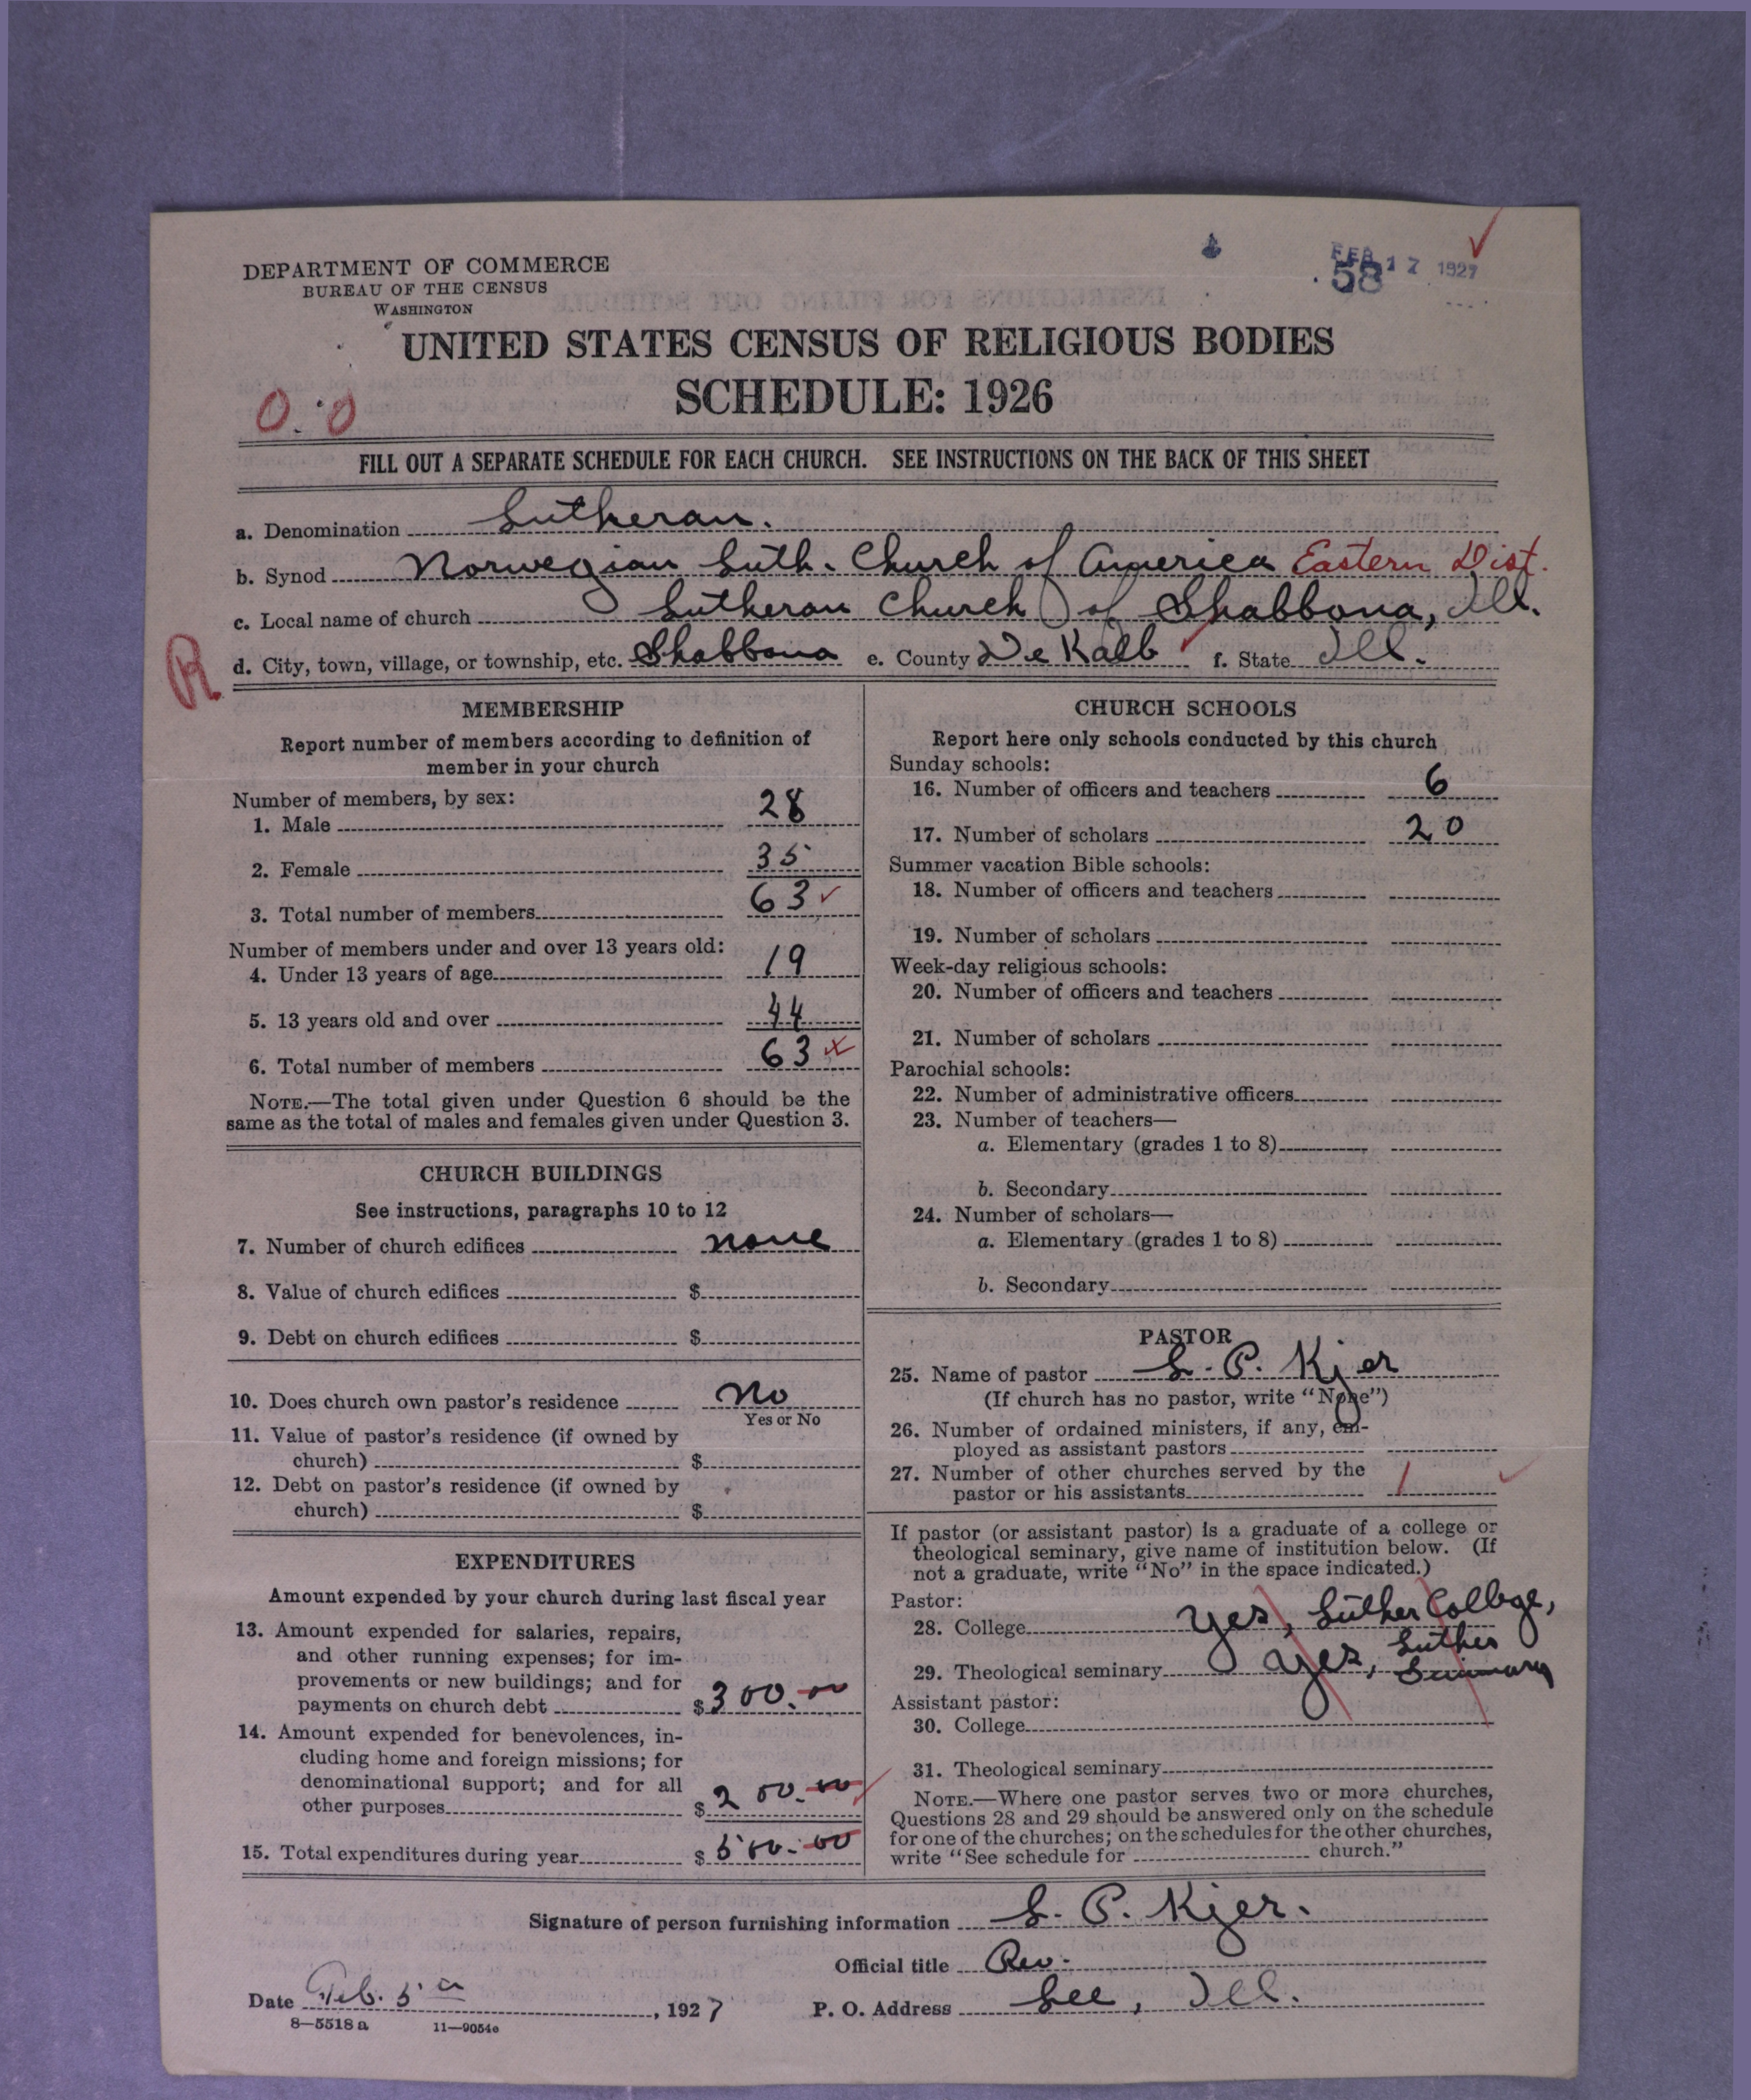 DEPARTMENT OF COMMERCE
BUREAU OF THE CENSUS
WASHINGTON
FEB 17 1927
58
UNITED STATES CENSUS OF RELIGIOUS BODIES
SCHEDULE: 1926
0:0
FILL OUT A SEPARATE SCHEDULE FOR EACH CHURCH. SEE INSTRUCTIONS ON THE BACK OF THIS SHEET
a. Denomination Lutheran.
b. Synod Norwegian Luth. Church of America Eastern Dist.
c. Local name of church Lutheran Church of Shabbona, Ill.
R
d. City, town, village, or township, etc. Shabbona e. County De Kalb f. State Ill.
MEMBERSHIP
Report number of members according to definition of
member in your church
Number of members, by sex:
1. Male 28
2. Female 35
3. Total number of members 63
Number of members under and over 13 years old:
4. Under 13 years of age 19
5. 13 years old and over 44
6. Total number of members 63
NOTE.—The total given under Question 6 should be the
same as the total of males and females given under Question 3.
CHURCH BUILDINGS
See instructions, paragraphs 10 to 12
7. Number of church edifices none
8. Value of church edifices $
9. Debt on church edifices $
10. Does church own pastor's residence No
Yes or No
11. Value of pastor's residence (if owned by
church) $
12. Debt on pastor's residence (if owned by
church) $
EXPENDITURES
Amount expended by your church during last fiscal year
13. Amount expended for salaries, repairs,
and other running expenses; for im-
provements or new buildings; and for
payments on church debt $300.00
14. Amount expended for benevolences, in-
cluding home and foreign missions; for
denominational support; and for all
other purposes $200.00
15. Total expenditures during year $500.00
CHURCH SCHOOLS
Report here only schools conducted by this church
Sunday schools:
16. Number of officers and teachers 6
17. Number of scholars 20
Summer vacation Bible schools:
18. Number of officers and teachers
19. Number of scholars
Week-day religious schools:
20. Number of officers and teachers
21. Number of scholars
Parochial schools:
22. Number of administrative officers
23. Number of teachers—
a. Elementary (grades 1 to 8)
b. Secondary
24. Number of scholars—
a. Elementary (grades 1 to 8)
b. Secondary
PASTOR
25. Name of pastor S. P. Kjer
(If church has no pastor, write "None")
26. Number of ordained ministers, if any, em-
ployed as assistant pastors
27. Number of other churches served by the
pastor or his assistants 1
If pastor (or assistant pastor) is a graduate of a college or
theological seminary, give name of institution below. (If
not a graduate, write "No" in the space indicated.)
Pastor:
28. College Yes, Luther College,
29. Theological seminary Yes, Luther
Seminary
Assistant pastor:
30. College
31. Theological seminary
NOTE.—Where one pastor serves two or more churches,
Questions 28 and 29 should be answered only on the schedule
for one of the churches; on the schedules for the other churches,
write "See schedule for church."
Signature of person furnishing information S. P. Kjer.
Official title Rev.
Date Feb. 5, 1927 P. O. Address Lee, Ill.
8—5518 a 11—9054